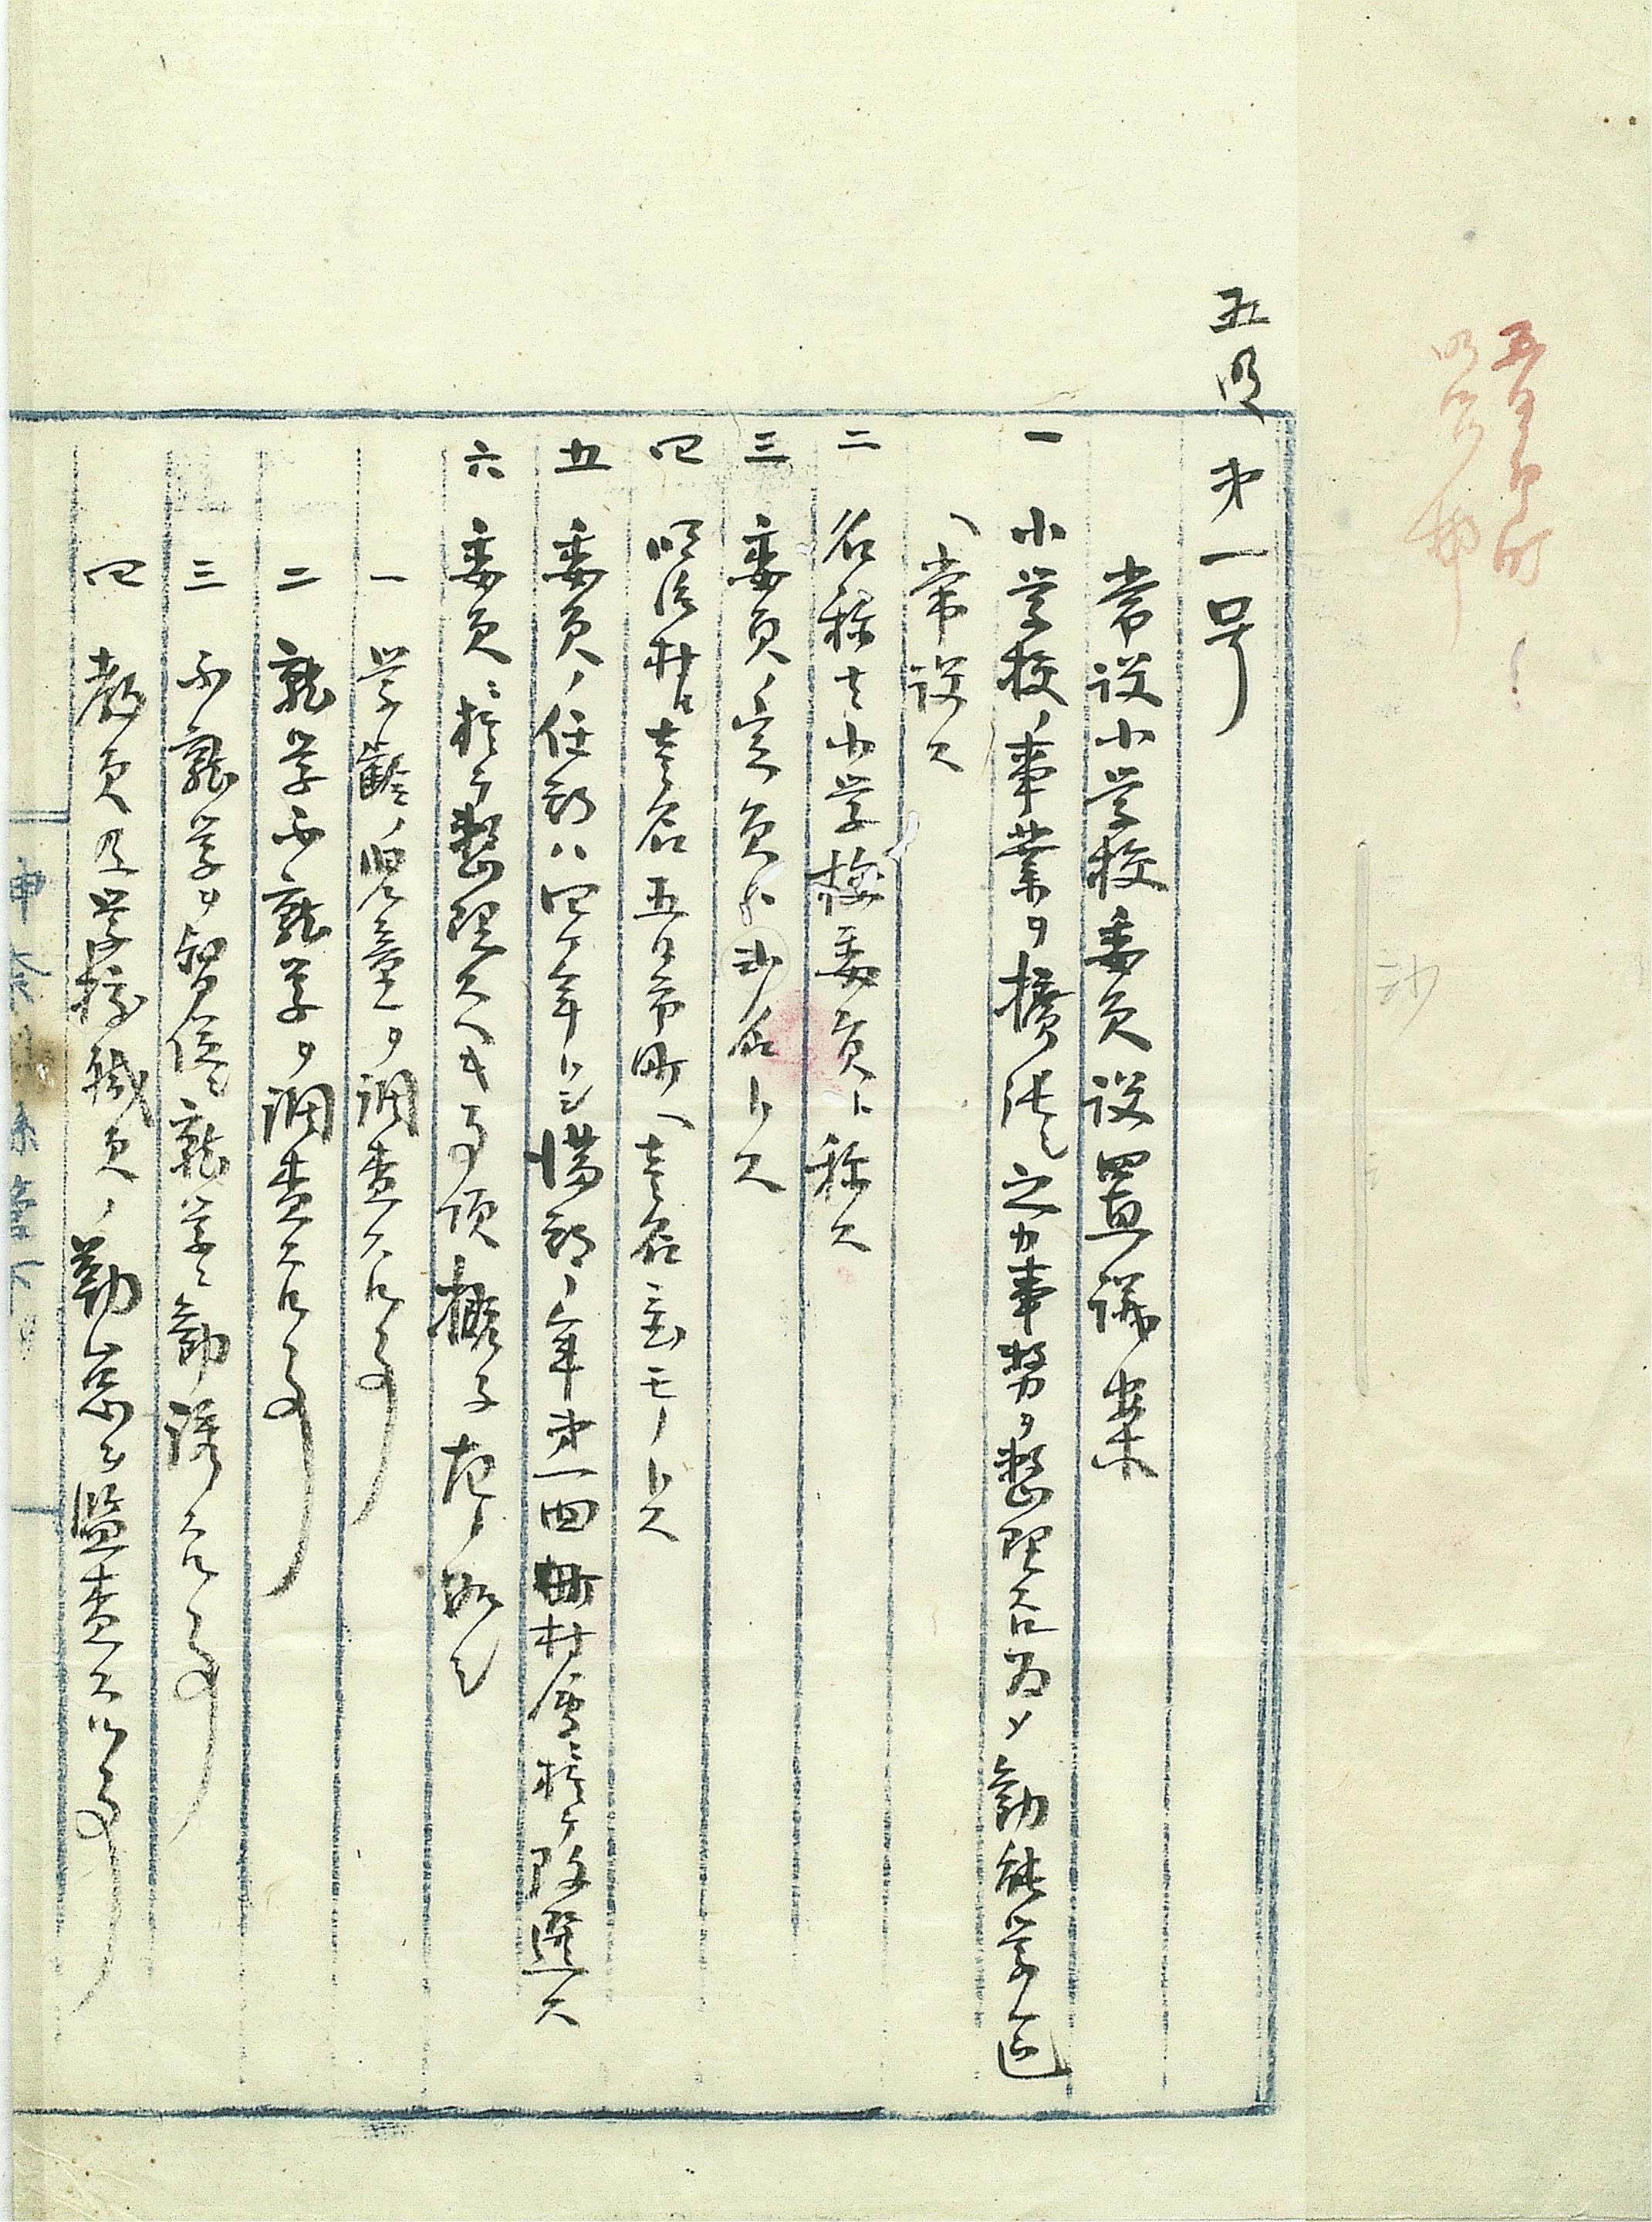 五明
第一号
常設小学校委員設置議案
一 小学校ノ事業ヲ拡張シ之カ事務ヲ整理スル為メ勧能学区
ヘ常設ス
二 名称ハ小学校委員ト称ス
三 委員ノ定員ハ弐名トス
四 明治村ヨリ壱名五日市町ヘ壱名ヲ置モノトス
五 委員ノ任期ハ四ケ年トシ満期ノ年第一回町村会ニ於テ改選ス
六 委員ニ於テ整理スヘキ事項概子左ノ如シ
一 学齢ノ児童ヲ調査スル事
二 就学不就学ヲ調査スル事
三 不就学ヲ督促シ就学ヲ勧誘スル事
四 教員及学校職員ノ勤怠ヲ監査スル事
神奈川県